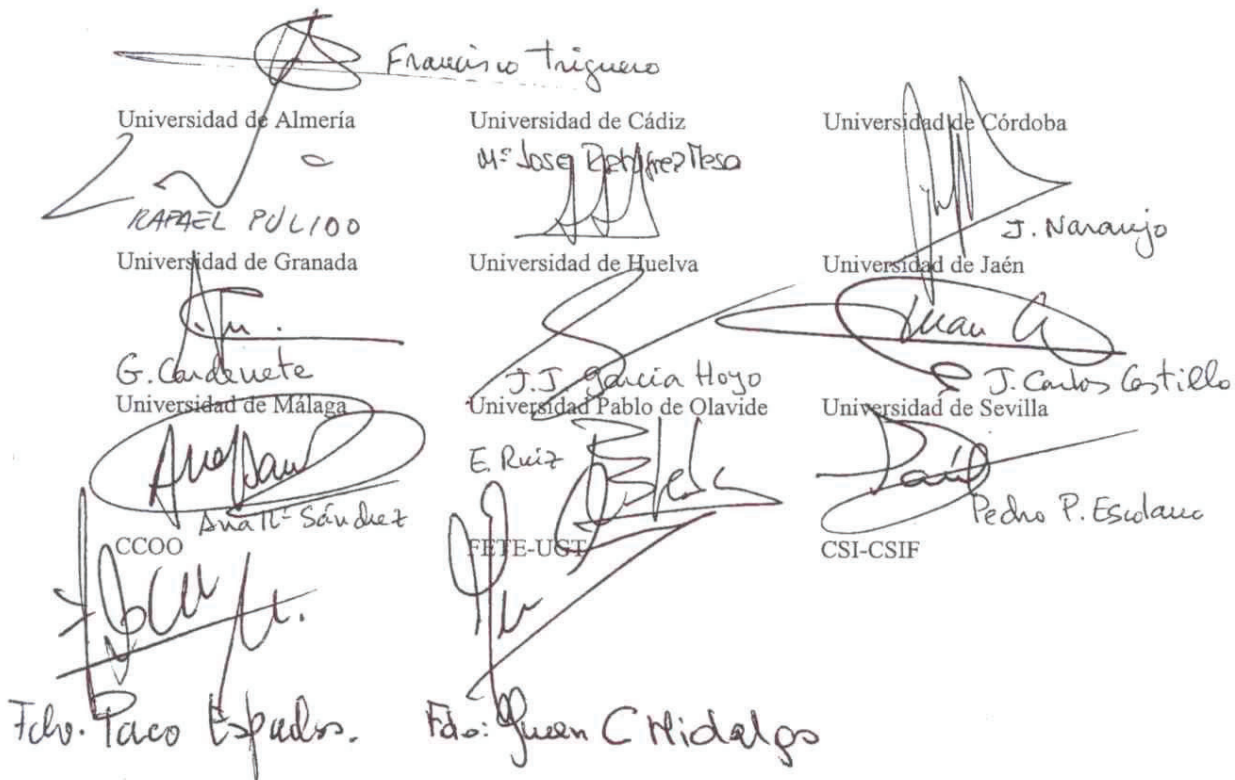 Francisco Triguero
Universidad de Almería Universidad de Cádiz Universidad de Córdoba
Mª Jose
RAFAEL PULIDO J. Naranjo
Universidad de Granada Universidad de Huelva Universidad de Jaén
Juan C
G. Cardenete J.J. García Hoyo J. Carlos Castillo
Universidad de Málaga Universidad Pablo de Olavide Universidad de Sevilla
E. Ruiz
Ana Mª Sánchez Pedro P. Escolano
CCOO FETE-UGT CSI-CSIF
Fdo. Paco Fdo: C Hidalgo